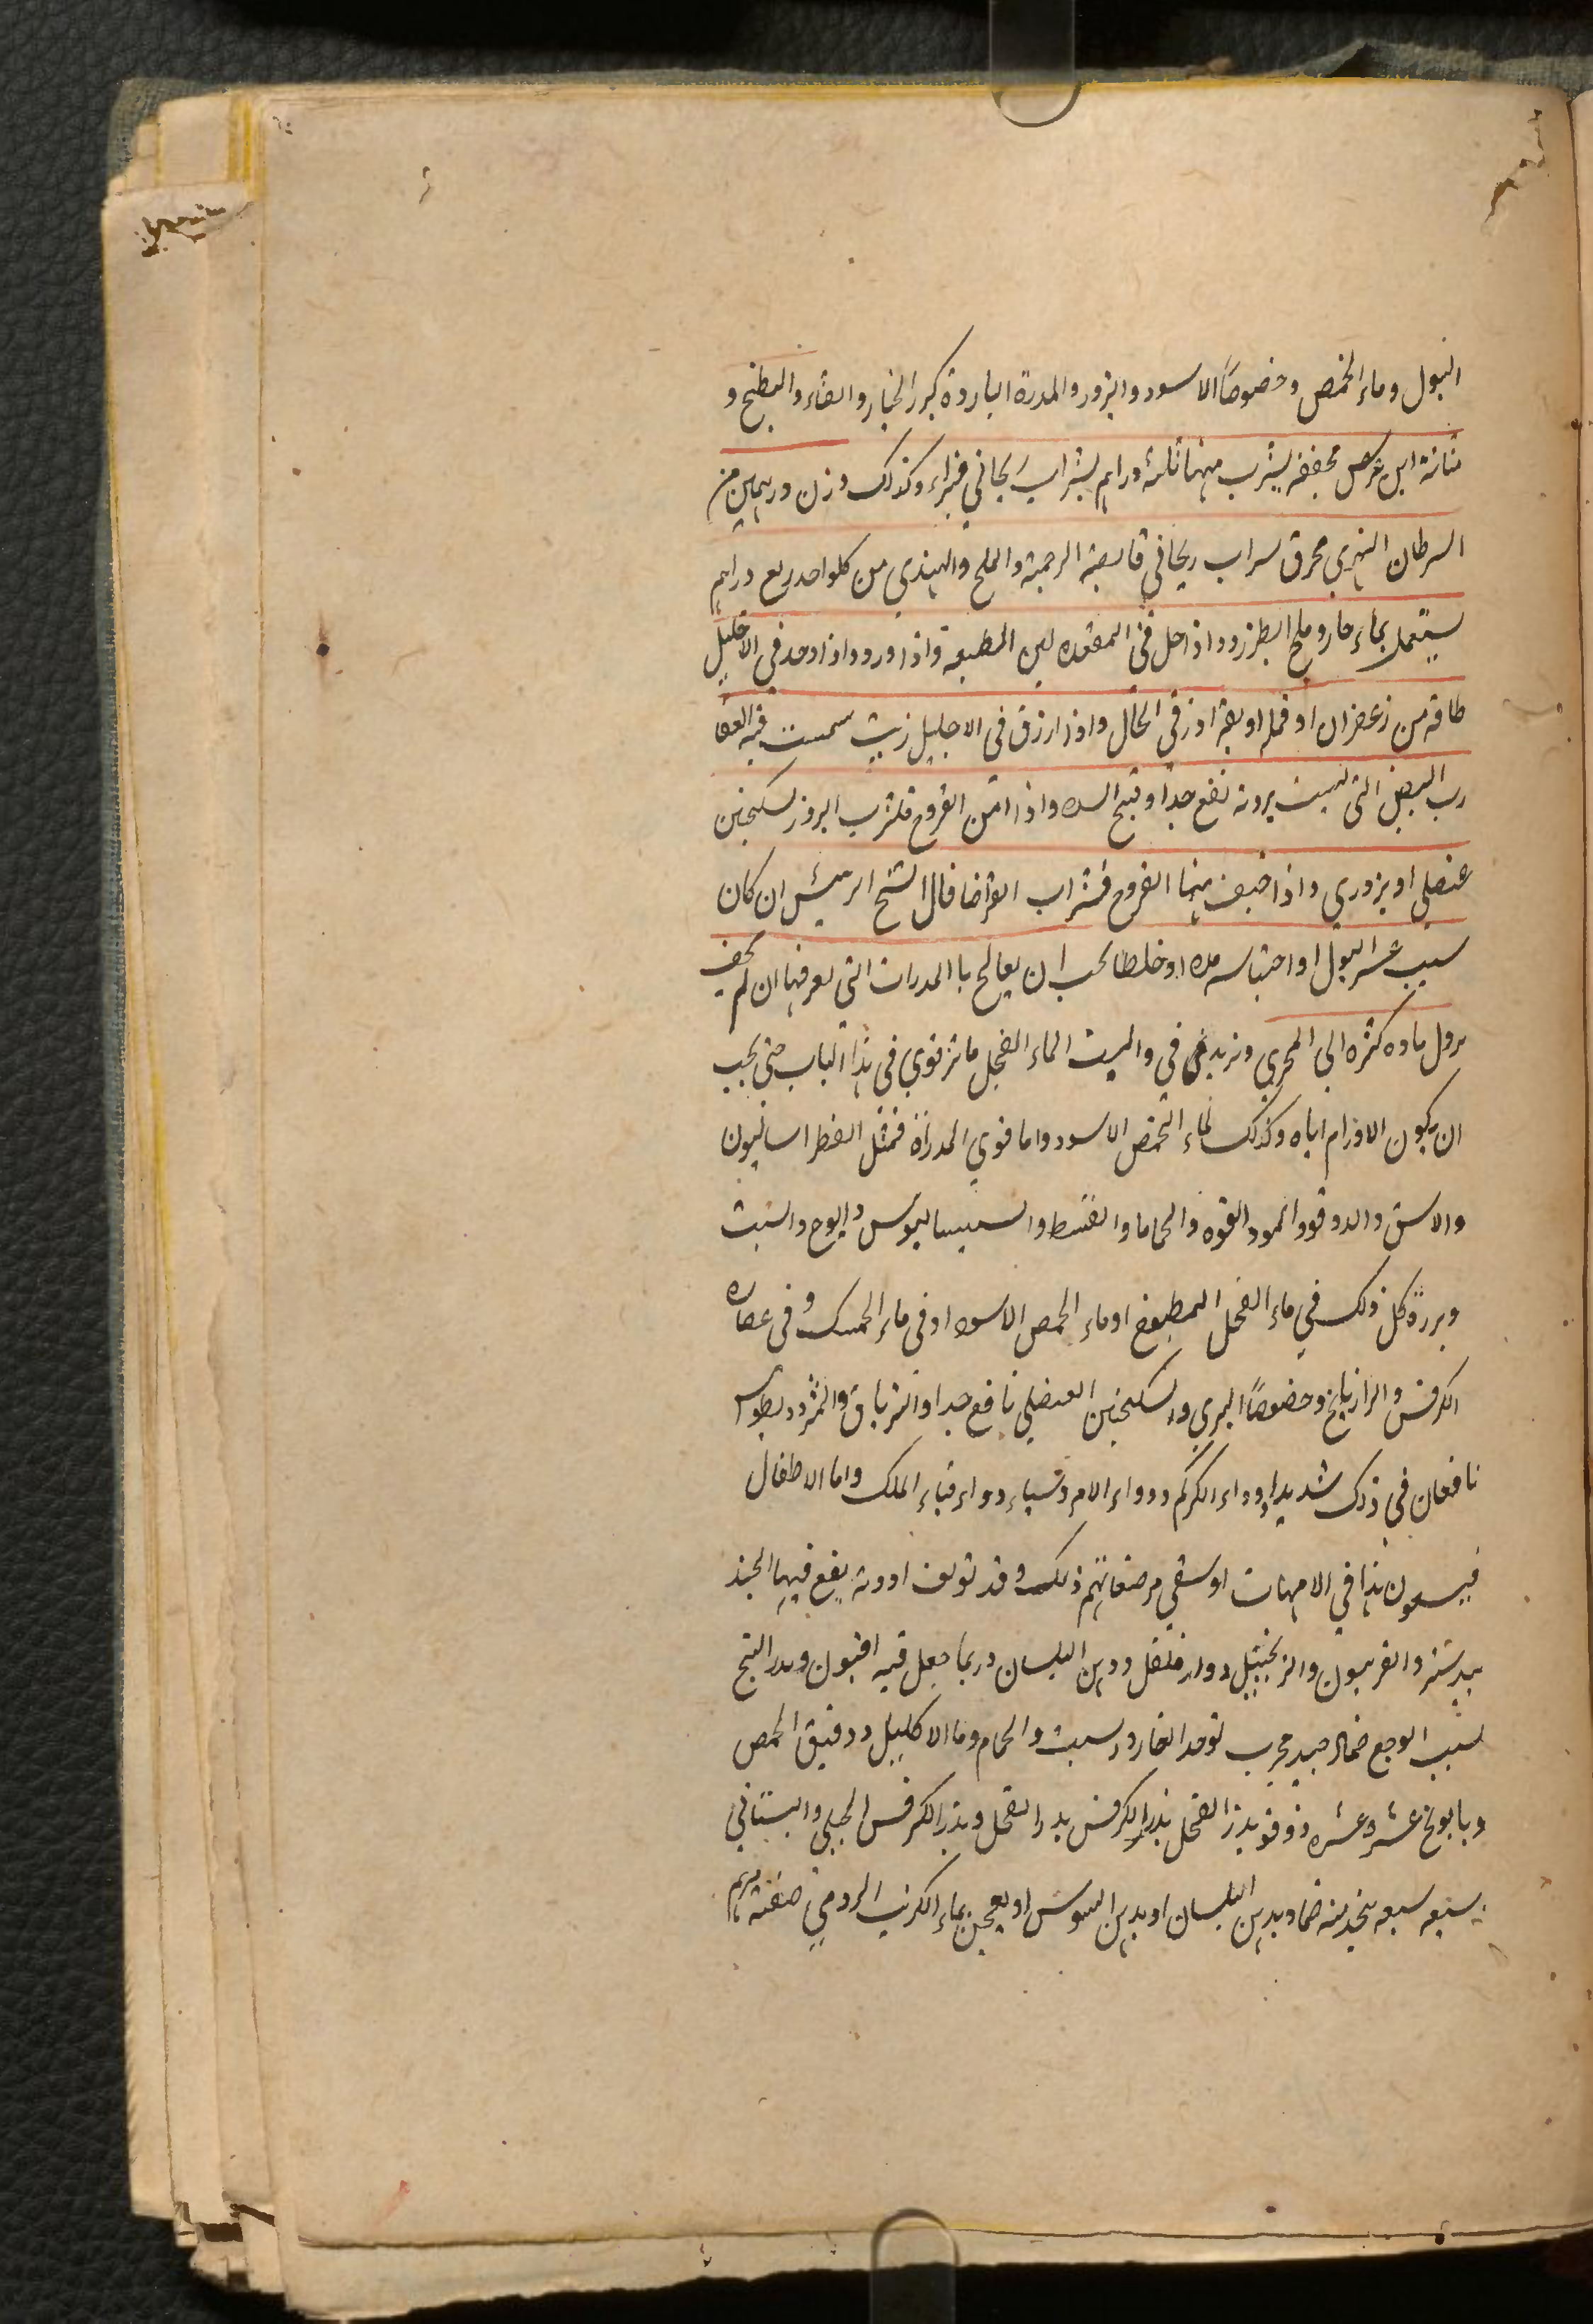 البول وماء الحمص وخصوصًا الاسود والبزور والمدرة الباردة كبزر الخيار والقثاء والبطيخ و
مثانة ابن عرس مجففه يشرب منها ثلثة دراهم بشراب ريحاني فبراء وكذلك وزن درهمين من
السرطان النهري محرق بشراب ريحاني الملح والهندي من كلواحد ربع دراهم
يستعمل بماء حار وملح الطبرزد واذا حمل في المقعده لين الطبيعة واذا ورد واذا اوخد في الاحليل
طاقه من زعفران او قمله او بقه ادر في الحال واذا ازرق في الاحليل زيت سمست فيه العقا
رب البيض التي ليست بروته نفع جدا وفتح السده واذا امن القروح فلشرب البروز بسكنجبين
عنصلي او بزوري واذا خيف منها القروح فشراب القراضا قال الشيخ الرئيس ان كان
سبب عسر البول او احتباسه مده او خلطا يجب ان يعالج با المدرات التي تعرفها ان لم يخف
نزول ماده كثره الي المجري وتزيد في الماء الفجل ماتر قوي في هذا الباب حتي يجب
ان يكون الاوزام اياه وكذلك لماء الحمص الاسود واما قوي المدراة فمثل الفطراساليون
والاسق والدوقو والمو والفوه والحماما والقسط والسيساليوس والوج والشبت
وبررة كل ذلك في ماء الفجل المطبوخ او ماء الحمص الاسود او في ماء الحسك و في عصاره
الكرفس والرازيانج وخصوصًا البري والسكنجبين العنصلي نافع جدا والترياق والمثروديطوس
نافعان في ذلك شديدا ودواء الكركم ودواء الامروسياء دواء قباء الملك واما الاطفال
فيسعون هذا في الامهات او سقي مرضعاتهم ذلك وقد تولف ادويه يقع فيها الجند
بيدستر والفربيون والزنجبيل ودارفلفل ودهن البلسان وربما جعل فيه افيون وبدر البنج
لسبب الوجع ضماد جيد مجرب توخد الغار وسبت والحمام وما الاكليل ودقيق الحمص
وبابونج عشره عشره دوقو بدر الفجل بذر الكرفس بدر الفجل وبذر الكرفس الجبلي والبستاني
سبعه سبعه يتخد منه ضماد بدهن البلسان او بدهن السوسن او يعجن بماء الكرنب الرومي صفته مرهم